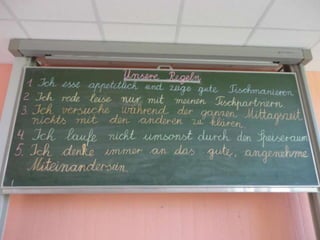 Unsere Regeln
1. Ich esse appetitlich und zeige gute Tischmanieren
2. Ich rede leise nur mit meinen Tischpartnern
3. Ich versuche während der ganzen Mittagszeit
nichts mit den anderen zu
4. Ich laufe nicht umsonst durch den Speiseraum
5. Ich denke immer an das gute, angenehme